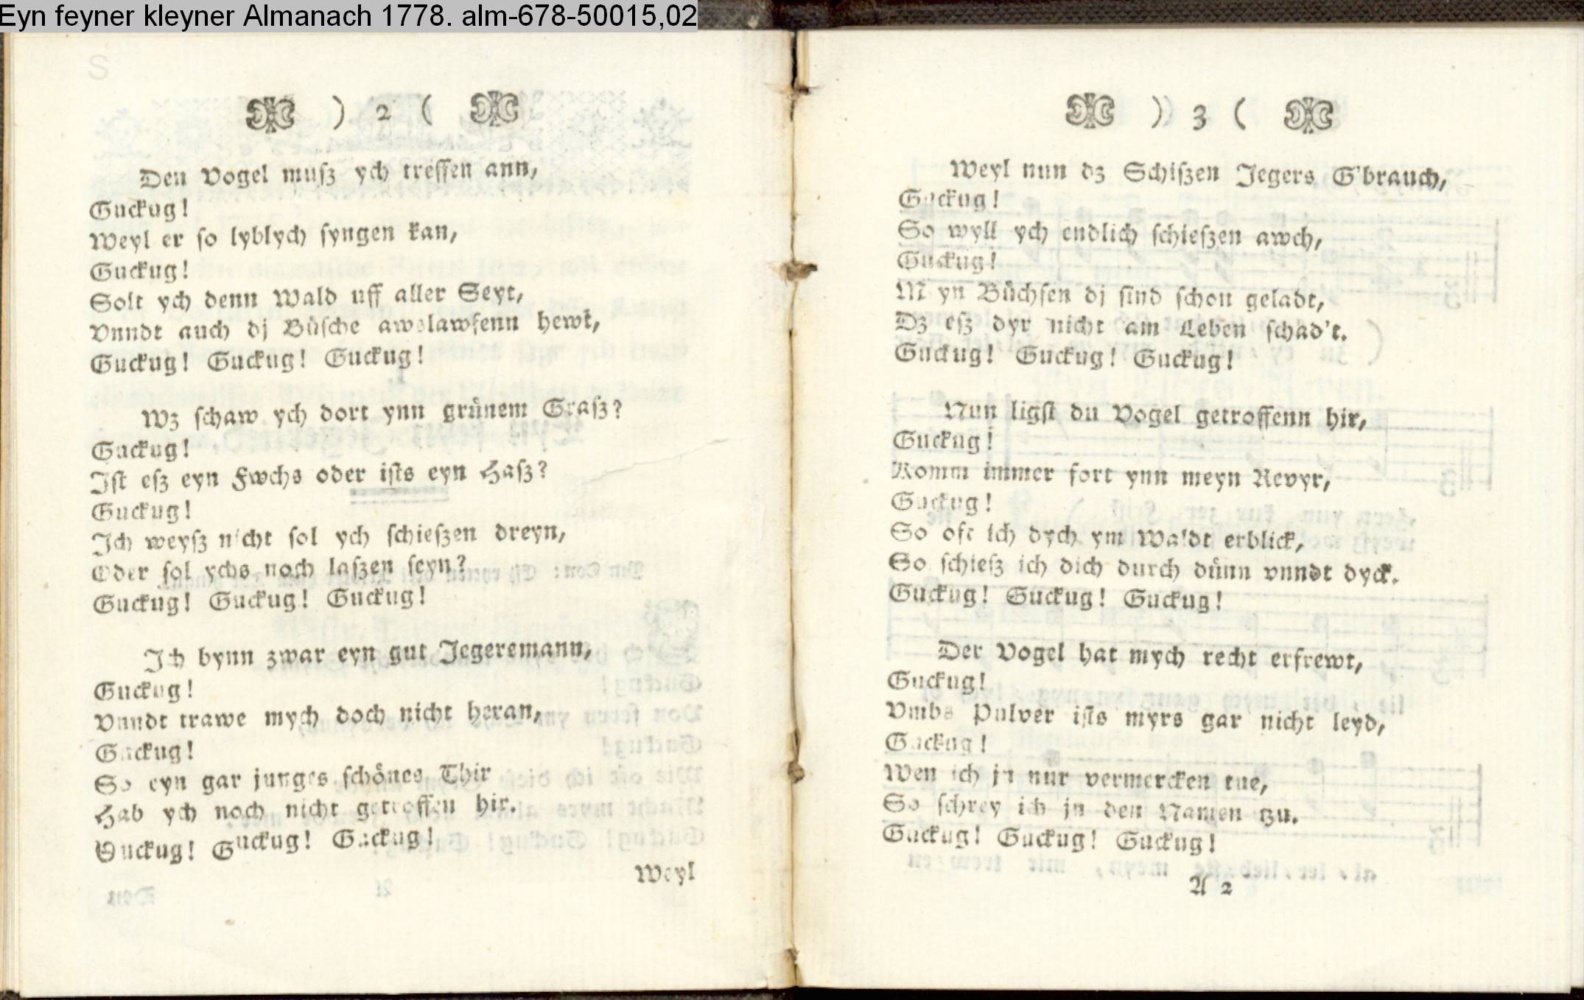 Eyn feyner kleyner Almanach 1778. alm-678-50015,02
) 2 (
Den Vogel muſz ych treffen ann,
Guckug!
Weyl er ſo lyblych ſyngen kan,
Guckug!
Solt ych denn Wald uff aller Seyt,
Vnndt auch dj Büſche awslawfenn hewt,
Guckug! Guckug! Guckug!
Wz ſchaw ych dort ynn grünem Graſz?
Guckug!
Iſt eſz eyn Fwchs oder iſts eyn Haſz?
Guckug!
Ich weyſz nicht ſol ych ſchieſzen dreyn,
Oder ſol ychs noch laſzen ſeyn?
Guckug! Guckug! Guckug!
Ich bynn zwar eyn gut Jegeremann,
Guckug!
Vnndt trawe mych doch nicht heran,
Guckug!
So eyn gar junges ſchönes Thir
Hab ych noch nicht getroffen hir.
Guckug! Guckug! Guckug!
Weyl
) 3 (
Weyl nun dz Schiſzen Jegers G'brauch,
Guckug!
So wyll ych endlich ſchieſzen awch,
Guckug!
Meyn Büchſen dj ſind ſchon geladt,
Dz eſz dyr nicht am Leben ſchad't.
Guckug! Guckug! Guckug!
Nun ligſt du Vogel getroffenn hir,
Guckug!
Komm immer fort ynn meyn Revyr,
Guckug!
So oft ich dych ym Waldt erblick,
So ſchieſz ich dich durch dünn vnndt dyck.
Guckug! Guckug! Guckug!
Der Vogel hat mych recht erfrewt,
Guckug!
Vmbs Pulver iſts myrs gar nicht leyd,
Guckug!
Wen ich jn nur vermercken tue,
So ſchrey ich jn den Namen tzu.
Guckug! Guckug! Guckug!
A 2